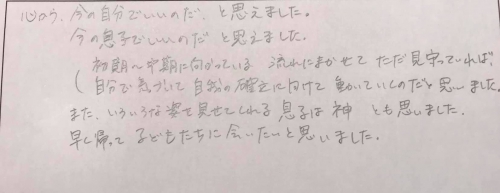 心のう、今の自分でいいのだ、と思えました。
今の息子でいいのだ と思えました。
初期〜中期に向かっている 流れにまかせて ただ見守っていれば、
自分で気づいて 自我の確立に向けて 動いていくのだと思いました。
また、いろいろな姿を見せてくれる 息子は神 とも思いました。
早く帰って 子どもたちに会いたいと思いました。